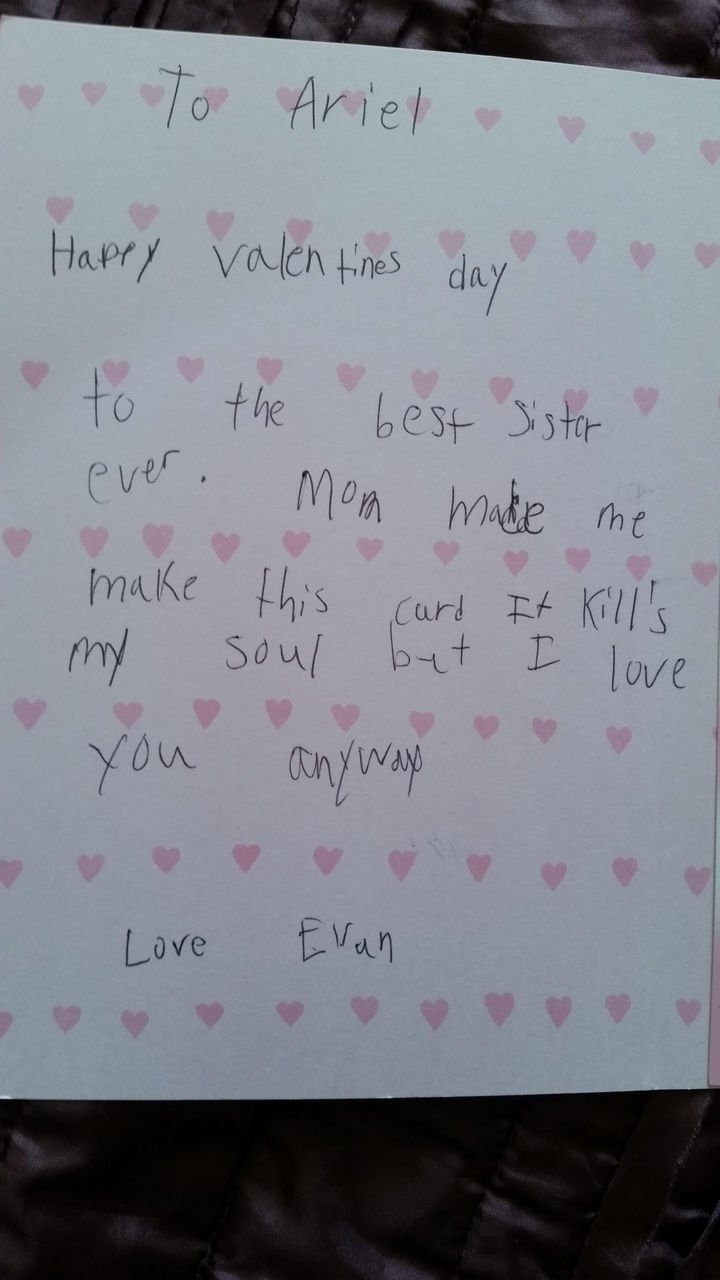 To Ariel
Happy valentines day
to the best sister
ever. Mom made me
make this card It Kill's
my soul but I love
you anyway
Love Evan